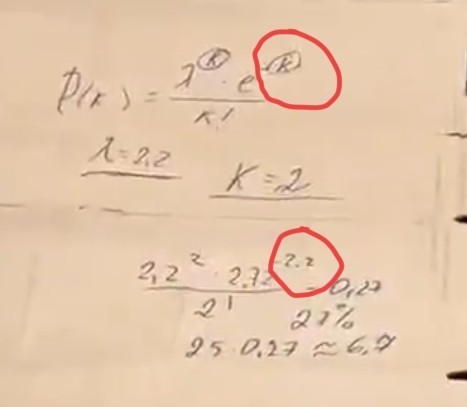 P(k) = λ^k · e^-k / k!
λ = 2,2 K = 2
2,2² · 2,72^-2,2 / 2! = 0,27
27%
25 · 0,27 ≈ 6,7